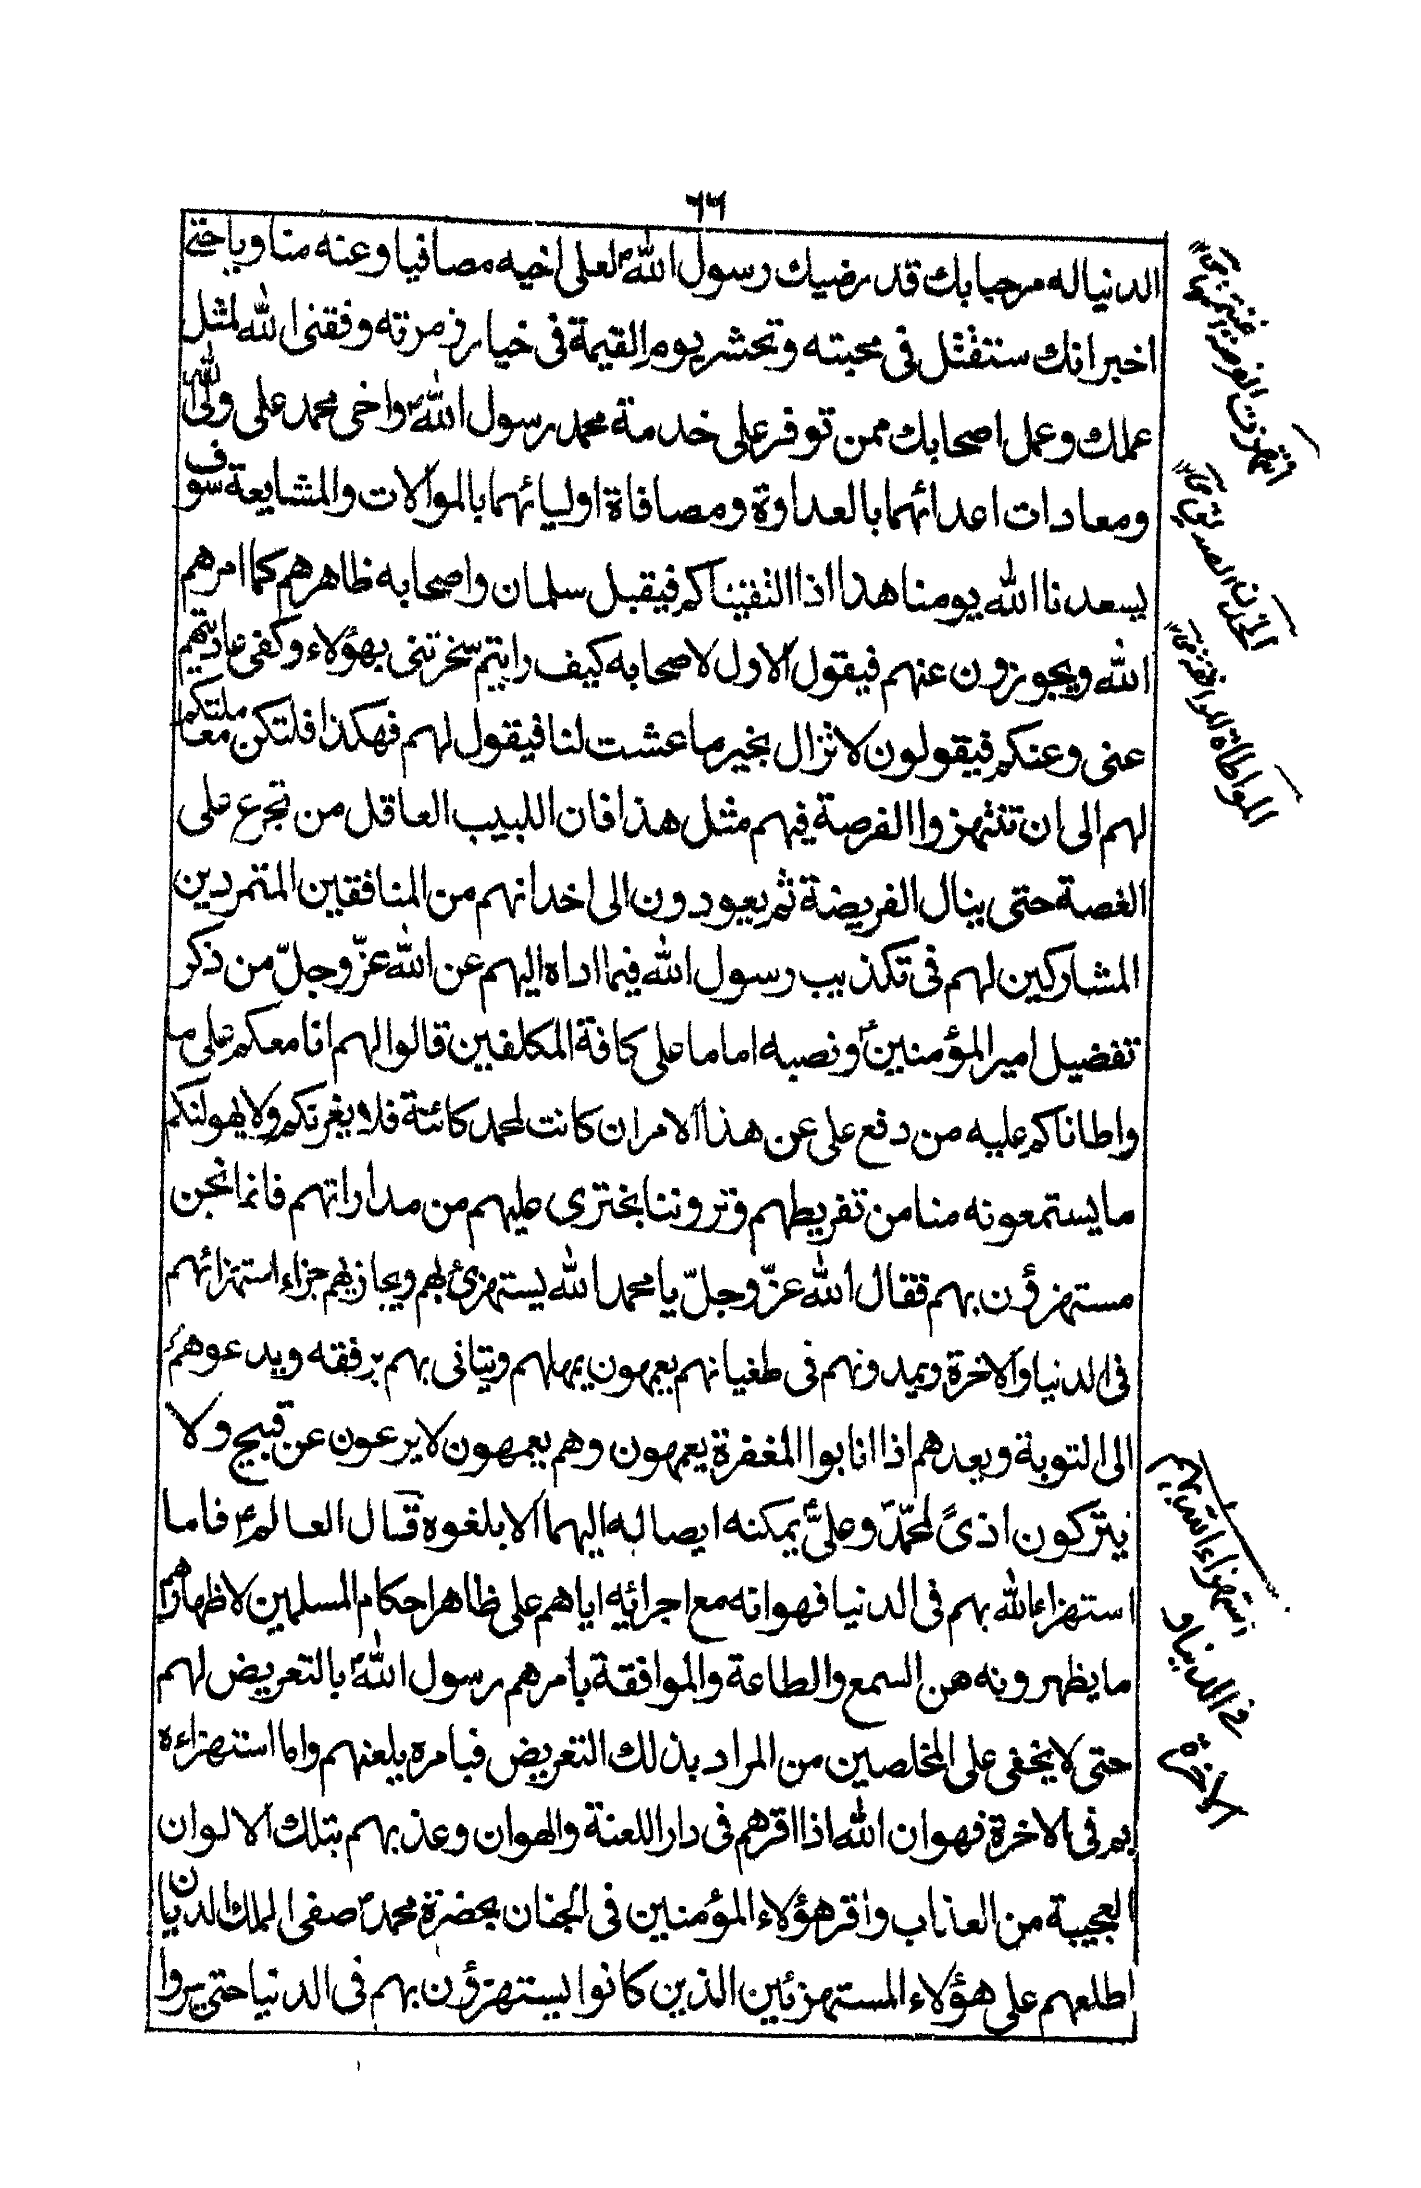 ٦٦
الدنيا له مرحبا بك قد رضيك رسول الله لعلى اخيه مصافيا وعنه مناويا حتى
اخبر انك ستقتل فى محبته وتحشر يوم القيمة فى خيار زمرته وفقنى الله لمثل
عملك وعمل اصحابك ممن توفر على خدمة محمد رسول الله واخى محمد على ولى الله
ومعادات اعدائهما بالعداوة ومصافاة اوليائهما بالموالات والمشايعة سوف
يسعدنا الله يومنا هذا اذا التقيناكم فيقبل سلمان واصحابه ظاهرهم كما امرهم
الله ويجوزون عنهم فيقول الاول لاصحابه كيف رايتم سخرتنى بهؤلاء وكفى عاديتهم
عنى وعنكم فيقولون لا نزال بخير ما عشت لنا فيقول لهم فهكذا فلتكن معاملتكم
لهم الى ان تنتهزوا الفرصة فيهم مثل هذا فان اللبيب العاقل من تجرع على
الغصة حتى ينال الفريضة ثم يعودون الى اخدانهم من المنافقين المتمردين
المشاركين لهم فى تكذيب رسول الله فيما اداه اليهم عن الله عزّ وجلّ من ذكر
تفضيل امير المؤمنين ونصبه اماما على كافة المكلفين قالوا لهم انا معكم على ما
واطاناكم عليه من دفع على عن هذا الامر ان كانت لمحمد كائنة فلا يغرنكم ولا يهولنكم
ما يستمعونه منا من تفريطهم وتروننا بخترى عليهم من مداراتهم فانما نحن
مستهزؤن بهم فقال الله عزّ وجلّ يا محمد الله يستهزئ بهم ويجازيهم جزاء استهزائهم
فى الدنيا والاخرة ويمدونهم فى طغيانهم يعمهون يمهلهم ويتانى بهم برفقه ويدعوهم
الى التوبة ويعدهم اذا انابوا المغفرة يعمهون وهم يعمهون لا يرعون عن قبيح ولا
يتركون اذىً لمحمّد وعلىّ يمكنه ايصاله اليهما الا بلغوه قال العالم فاما
استهزاء الله بهم فى الدنيا فهو انه مع اجرائه اياهم على ظاهر احكام المسلمين لاظهارهم
ما يظهرونه من السمع والطاعة والموافقة بأمرهم رسول الله بالتعريض لهم
حتى لا يخفى على المخلصين من المراد بذلك التعريض فيامره بلعنهم واما استهزاءه
بهم فى الاخرة فهو ان الله اذا اقرهم فى دار اللعنة والهوان وعذبهم بتلك الالوان
العجيبة من العذاب واقر هؤلاء المؤمنين فى الجنان بحضرة محمد صفى الملك الديان
اطلعهم على هؤلاء المستهزئين الذين كانوا يستهزؤن بهم فى الدنيا حتى يروا
انتهزت الفرصة
الخدن الصديق
المواطاة الموافقة
استهزاء الله بهم
فى الدنيا و
الاخرة